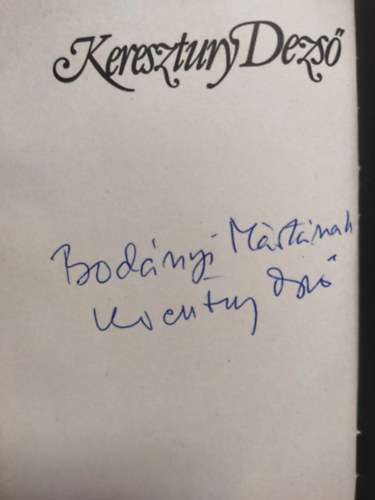 Keresztury Dezső
Bodányi Mártának
Keresztury Dezső